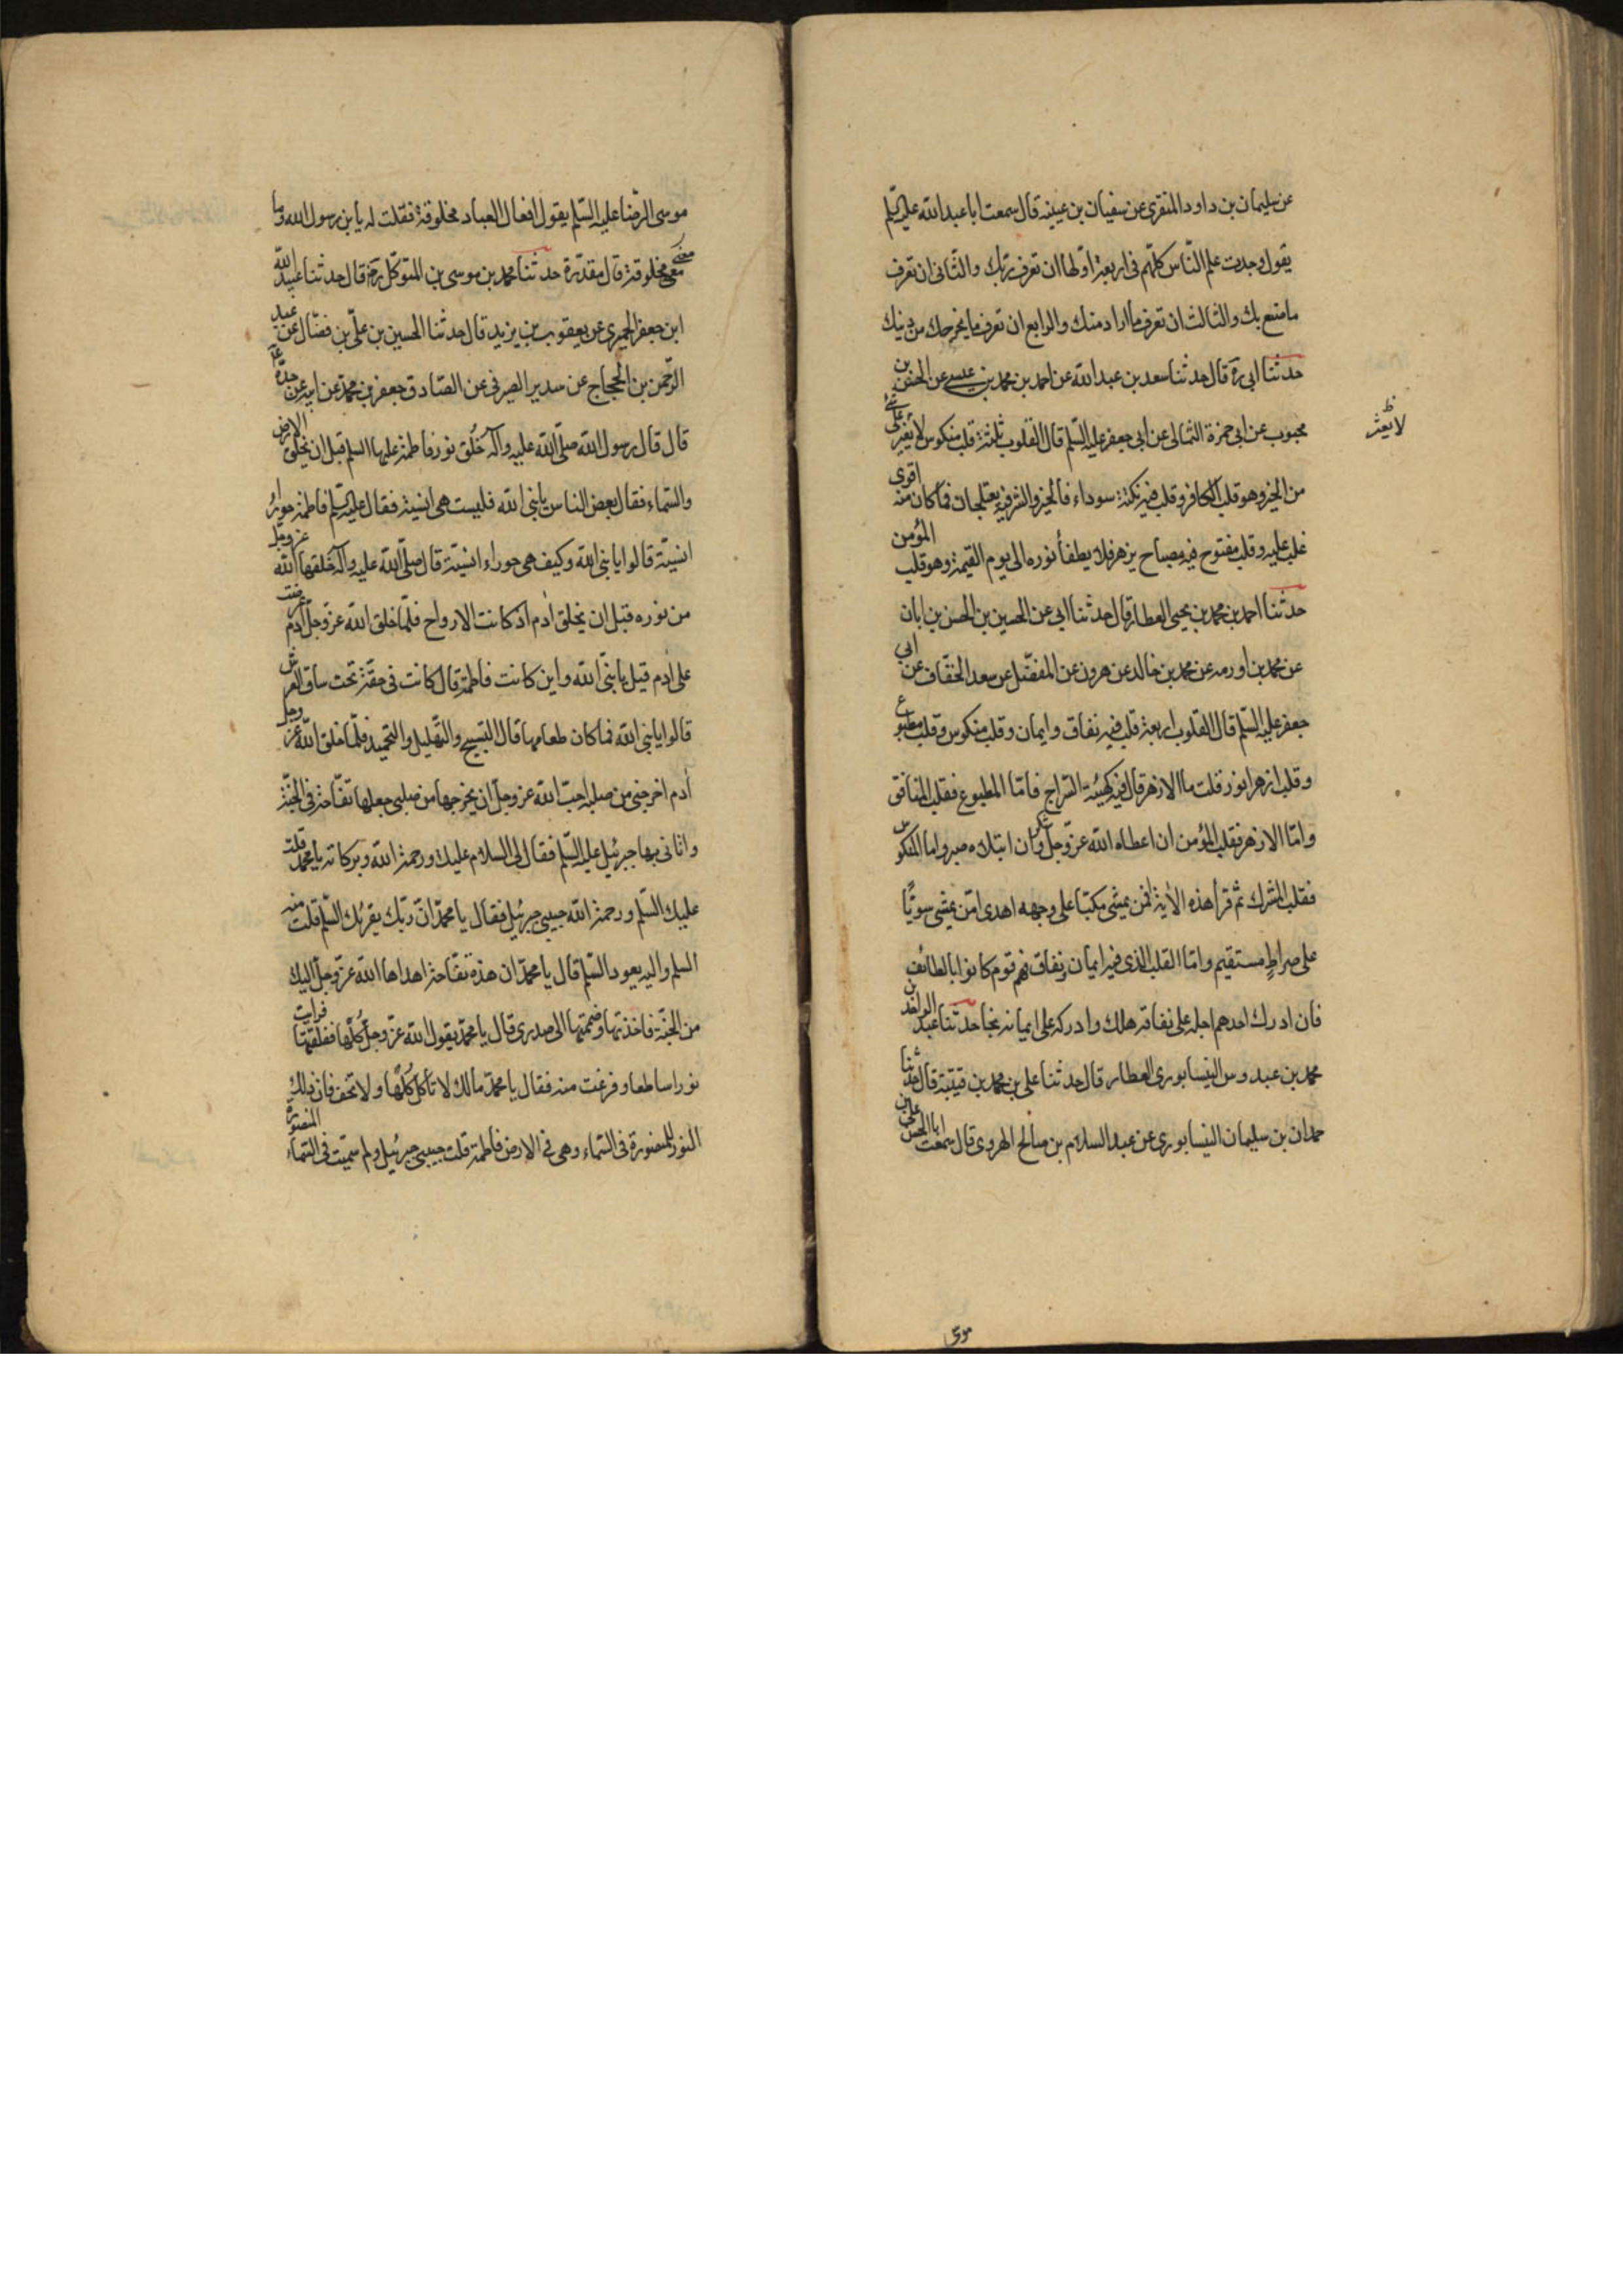 عن سليمان بن داود المنقري عن سفيان بن عيينه قال سمعت ابا عبد الله عليه السلم
يقول وجدت علم النّاس كلّهم فى اربعة اوّلها ان تعرف ربّك والثّانى ان تعرف
ما صنع بك والثالث ان تعرف ما اراد منك والرابع ان تعرف ما يخرجك من دينك
حدثنا ابى ره قال حدثنا سعد بن عبد الله عن احمد بن محمد بن عيسى عن الحسن بن
محبوب عن ابى حمزة الثمالى عن ابى جعفر عليه السّلم قال القلوب ثلثة قلب منكوس لا يعى على شئ
لا يعثر ظ
من الخير وهو قلب الكافر وقلب فيه نكتة سوداء فالخير والشر فيه يعتلجان فما كان منه اقوى
غلب عليه وقلب مفتوح فيه مصباح يزهر فلا يطفأ نوره الى يوم القيمة وهو قلب المؤمن
حدثنا احمد بن محمد بن يحيى العطار قال حدثنا ابى عن الحسين بن الحسن بن ابان
عن محمد بن اورمه عن محمد بن خالد عن هرون عن المفضّل عن سعد الخفّاف عن ابى
جعفر عليه السّلم قال القلوب اربعة قلب فيه نفاق وايمان وقلب منكوس وقلب مطبوع
وقلب ازهر انور قلت ما الازهر قال فيه كهيئة السّراج فامّا المطبوع فقلب المنافق
وامّا الازهر فقلب المؤمن ان اعطاه الله عزّ وجلّ شكر وان ابتلاه صبر واما المنكوس
فقلب المشرك ثم قرأ هذه الآية افمن يمشى مكبّا على وجهه اهدى امّن يمشى سويًّا
على صراطٍ مستقيم وامّا القلب الذى فيه ايمان ونفاق فهم قوم كانوا بالطائف
فان ادرك احدهم اجله على نفاقه هلك وادركه على ايمانه نجا حدثنا عبد الواحد بن
محمد بن عبدوس النيسابورى العطار قال حدثنا على بن محمد بن قتيبة قال حدثنا
حمدان بن سليمان النيسابورى عن عبد السلام بن صالح الهروى قال سمعت ابا الحسن على بن
موسى
موسى الرضا عليه السّلم يقول افعال العباد مخلوقة فقلت له يا بن رسول الله وما
معنى مخلوقة قال مقدّرة حدثنا محمد بن موسى بن المتوكّل ره قال حدثنا عبد الله
ابن جعفر الحميرى عن يعقوب بن يزيد قال حدثنا الحسين بن علىّ بن فضّال عن عبد
الرّحمن بن الحجاج عن سدير الصيرفى عن الصّادق جعفر بن محمّد عن ابيه عن جدّه ع
قال قال رسول الله صلّى الله عليه وآله خُلق نور فاطمة عليها السلم قبل ان يخلق الارض
والسّماء فقال بعض الناس يا نبى الله فليست هى انسية فقال عليه السّلم فاطمة حوراء
انسيّة قالوا يا نبى الله وكيف هى حوراء انسيّة قال صلّى الله عليه وآله خلقها الله عز وجل
من نوره قبل ان يخلق آدم اذ كانت الارواح فلمّا خلق الله عزّ وجلّ آدم عرضت
على آدم قيل يا نبىّ الله واين كانت فاطمة قال كانت فى حقّة تحت ساق العرش
قالوا يا نبى الله فما كان طعامها قال التسبيح والتّهليل والتحميد فلمّا خلق الله عزّ وجلّ
آدم اخرجنى من صلبه احبّ الله عز وجلّ ان يخرجها من صلبى جعلها تفّاحة فى الجنّة
واتانى بها جبرئيل عليه السّلم فقال لى السلام عليك ورحمة الله وبركاته يا محمد قلت
عليك السّلم ورحمة الله حبيبى جبرئيل فقال يا محمّد انّ ربّك يقرئك السّلم قلت منه
السلم واليه يعود السّلم قال يا محمّد ان هذه تفّاحة اهداها الله عزّ وجلّ اليك
من الجنّة فاخذتها وضممتها الى صدرى قال يا محمّد يقول الله عزّ وجلّ كُلْها ففلقتها فرايت
نورا ساطعا وفزعت منه فقال يا محمّد مالك لا تأكل كُلْها ولا تخف فان ذلك
النور للمنصورة فى السّماء وهى فى الارض فاطمة قلت حبيبى جبرئيل ولم سميّت فى السّماء المنصورة